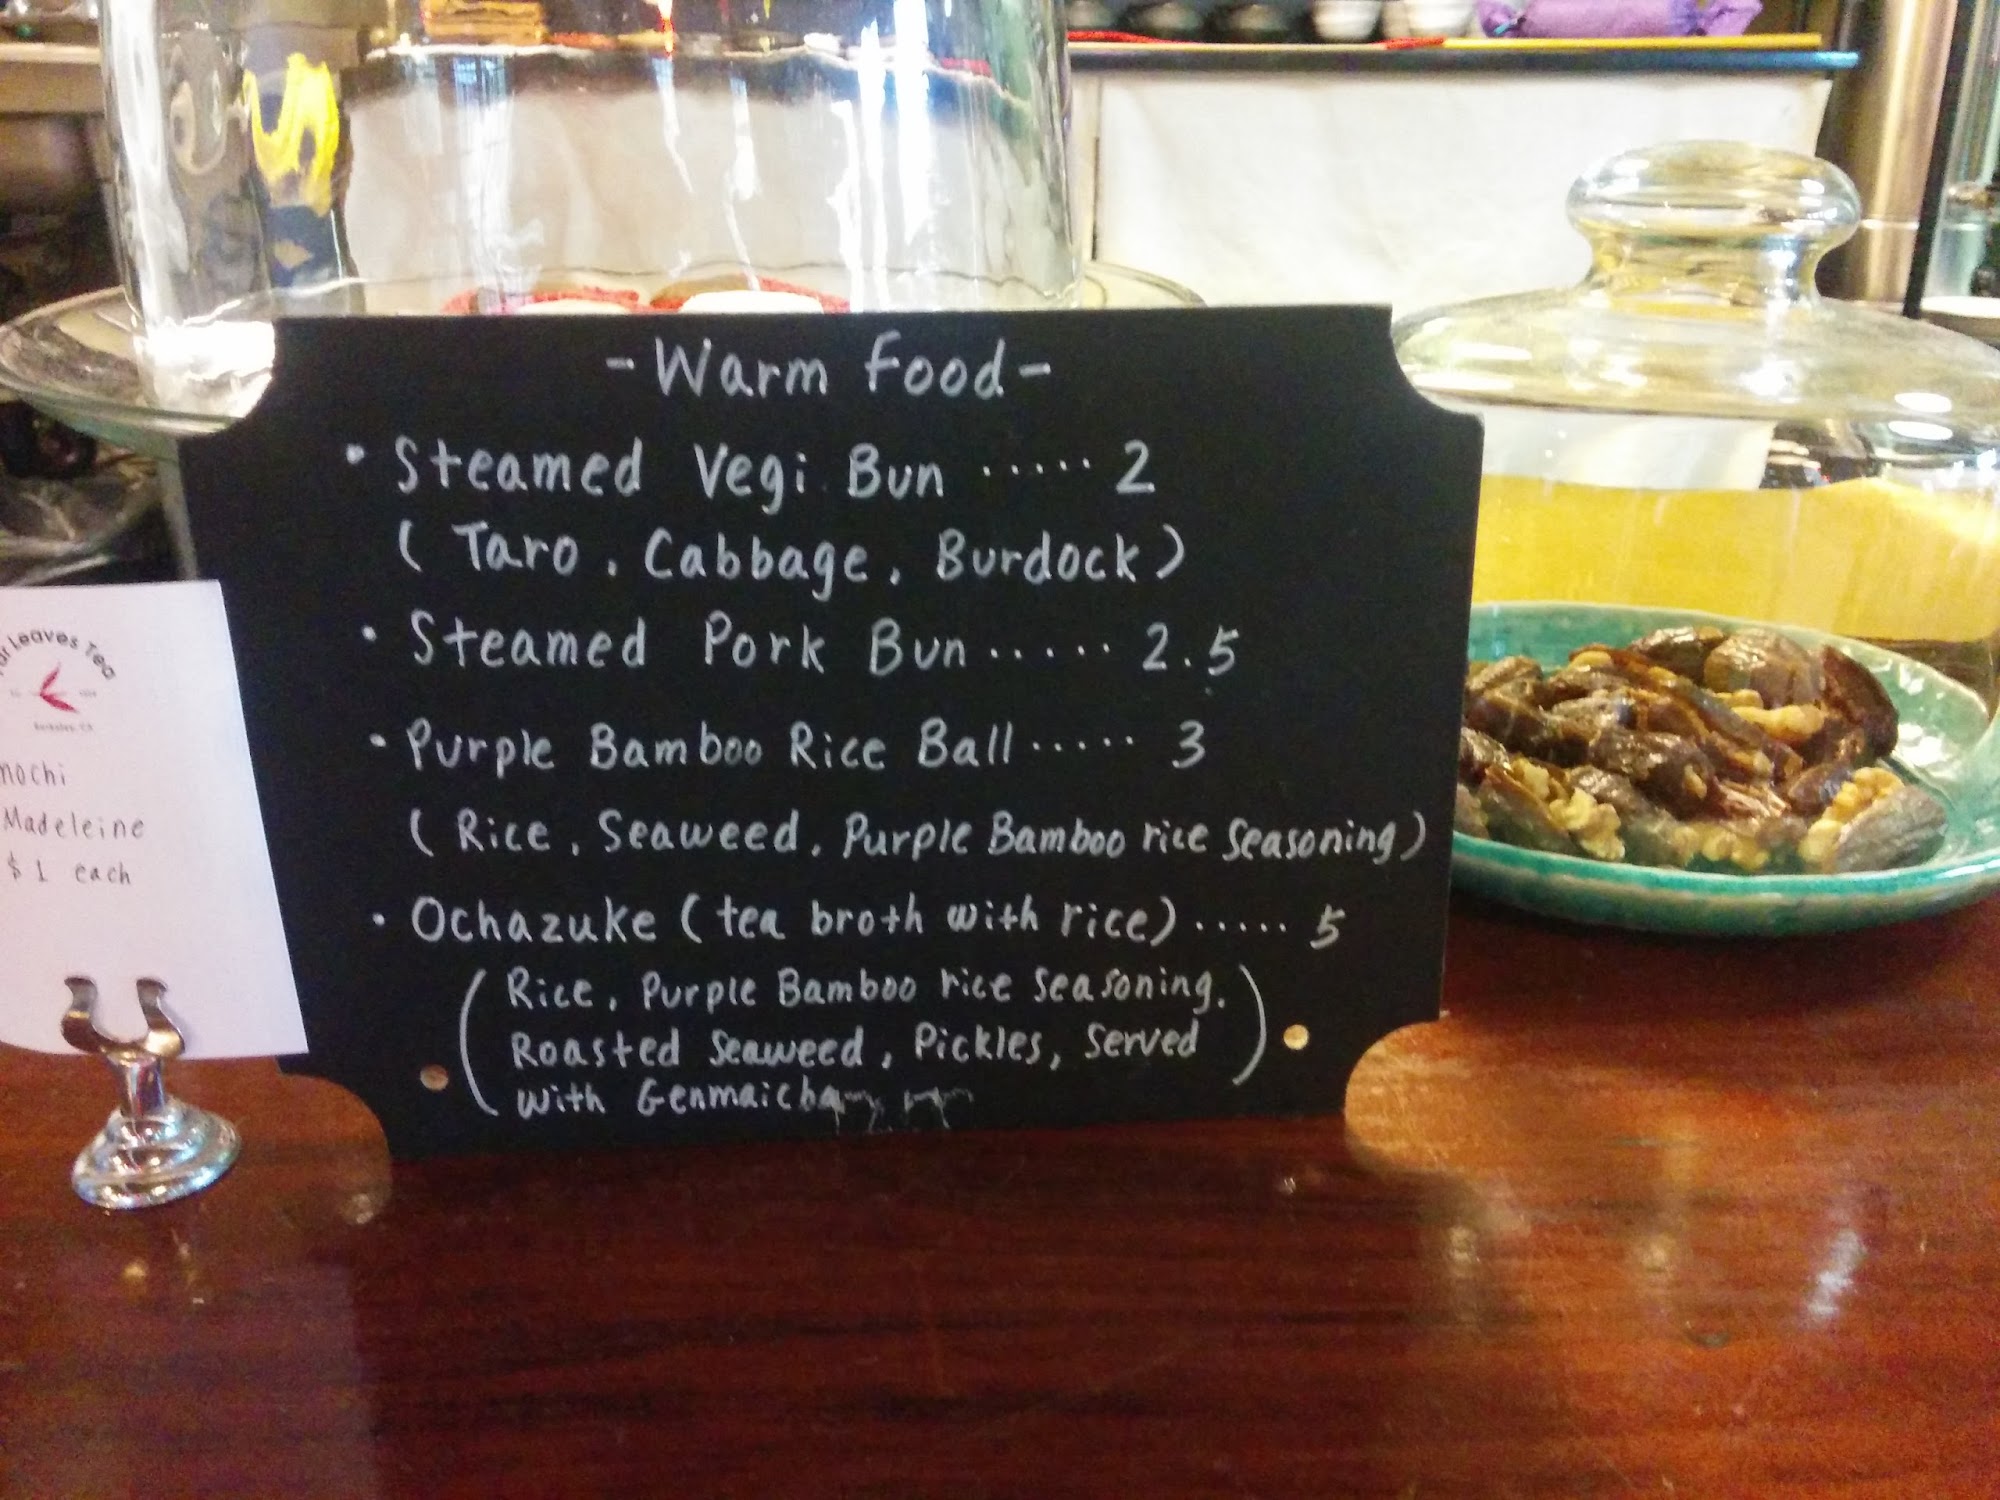 - Warm Food -
• Steamed Vegi Bun ..... 2
( Taro, Cabbage, Burdock )
• Steamed Pork Bun ..... 2.5
• Purple Bamboo Rice Ball ..... 3
( Rice, Seaweed, Purple Bamboo rice seasoning )
• Ochazuke (tea broth with rice) ..... 5
( Rice, Purple Bamboo rice seasoning.
Roasted Seaweed, Pickles, Served )
with Genmaicha
Leaves Tea
Berkeley, CA
Madeleine
$1 each